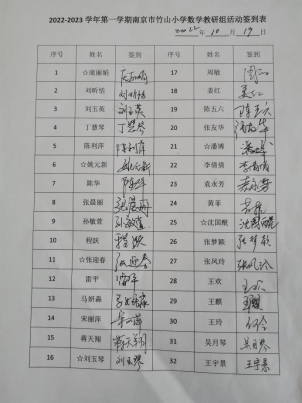 2022-2023 学年第一学期南京市竹山小学数学教研组活动签到表
2022 年 10 月 19 日
序号 姓名 签到 序号 姓名 签到
1 ☆庞丽娟 庞丽娟 17 周敏 周敏
2 刘昕恬 刘昕恬 18 姜红 姜红
3 刘玉英 刘玉英 19 陈五六 陈五六
4 丁慧琴 丁慧琴 20 张友华 张友华
5 陈利萍 陈利萍 21 ☆潘博
6 ☆姚元新 姚元新 22 李倩倩 李倩倩
7 陈华 陈华 23 袁永芳 袁永芳
8 张晨丽 张晨丽 24 黄菲 黄菲
9 孙敏萱 孙敏萱 25 ☆沈国酰
10 程跃 程跃 26 张梦颖 张梦颖
11 ☆张迎春 张迎春 27 张风玲 张风玲
12 雷平 雷平 28 王欢 王欢
13 马妍淼 29 王麒 王麒
14 宋丽萍 宋丽萍 30 王玲
15 蒋天翔 蒋天翔 31 吴月琴 吴月琴
16 ☆刘玉琴 刘玉琴 32 王宇景 王宇景